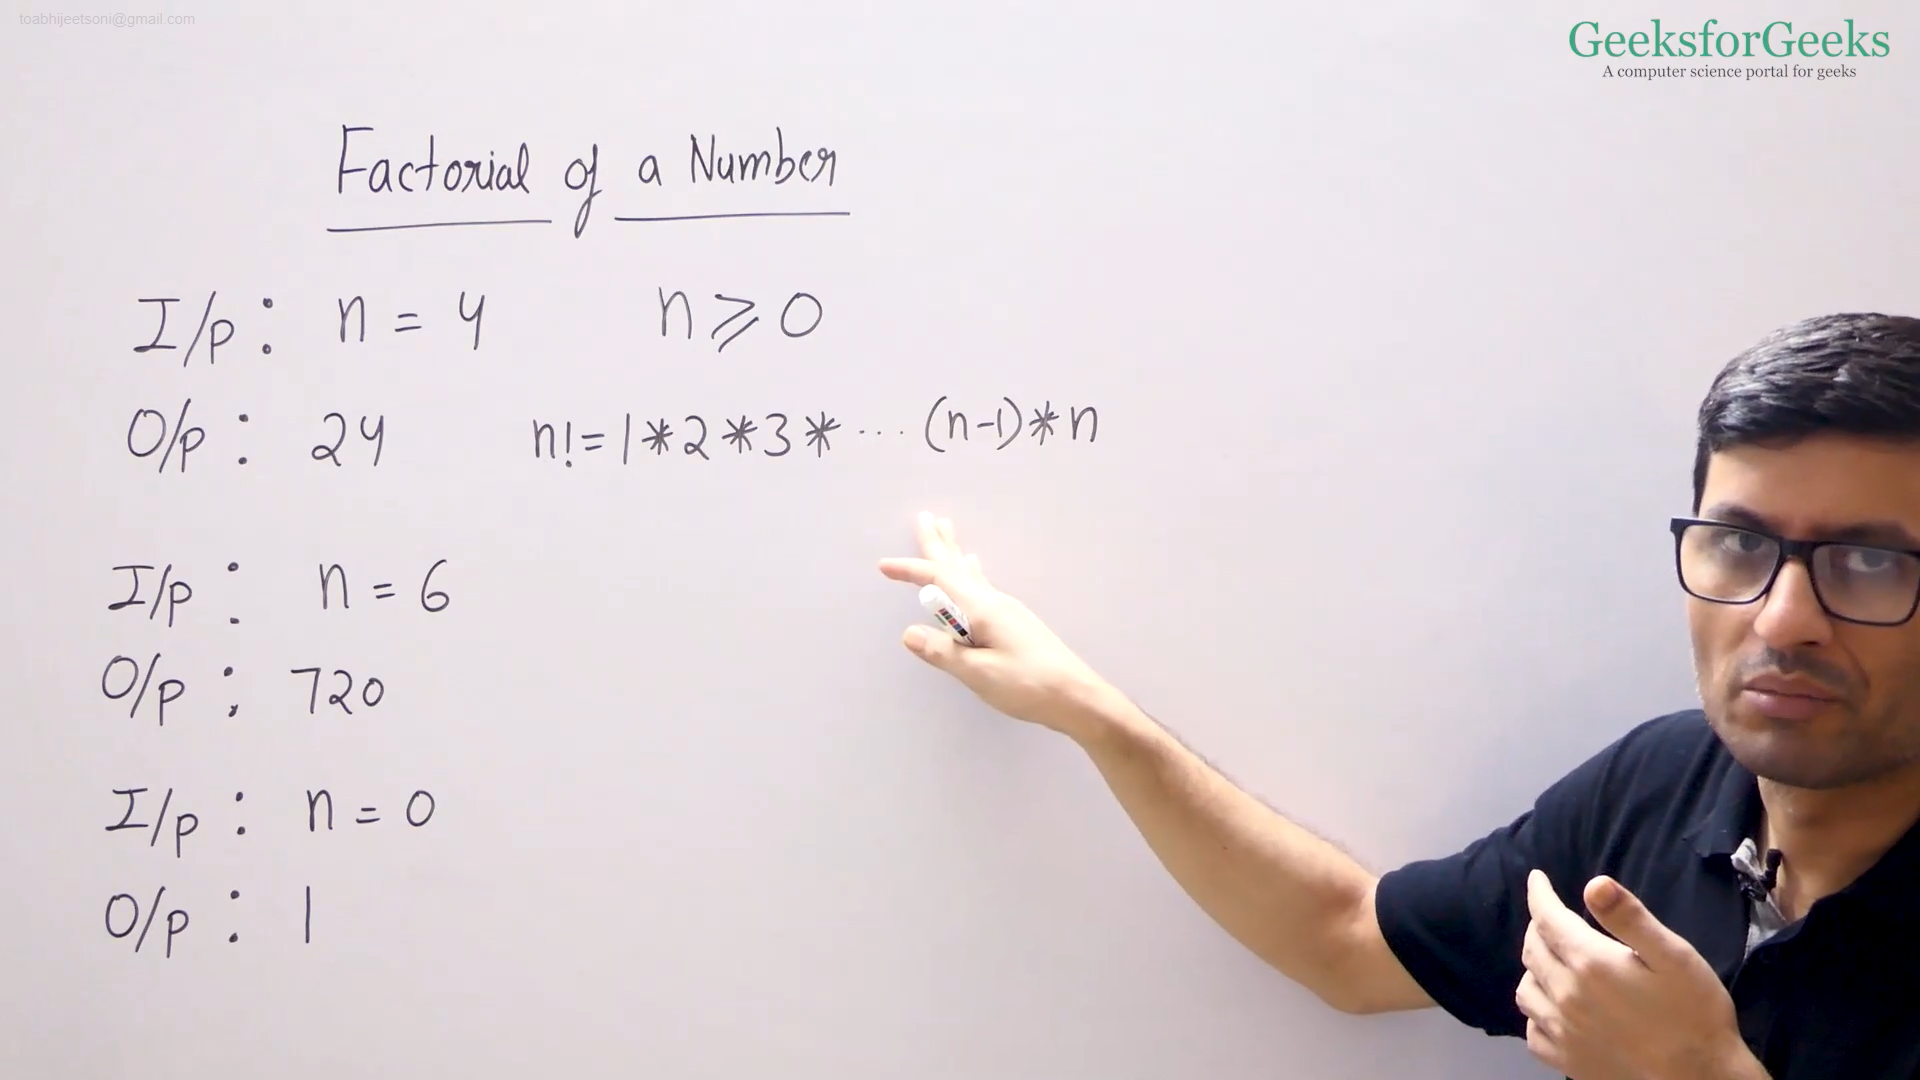 toabhijeetsoni@gmail.com
GeeksforGeeks
A computer science portal for geeks
Factorial of a Number
I/p : n = 4 n ⩾ 0
O/p : 24 n! = 1 * 2 * 3 * ... (n-1) * n
I/p : n = 6
O/p : 720
I/p : n = 0
O/p : 1